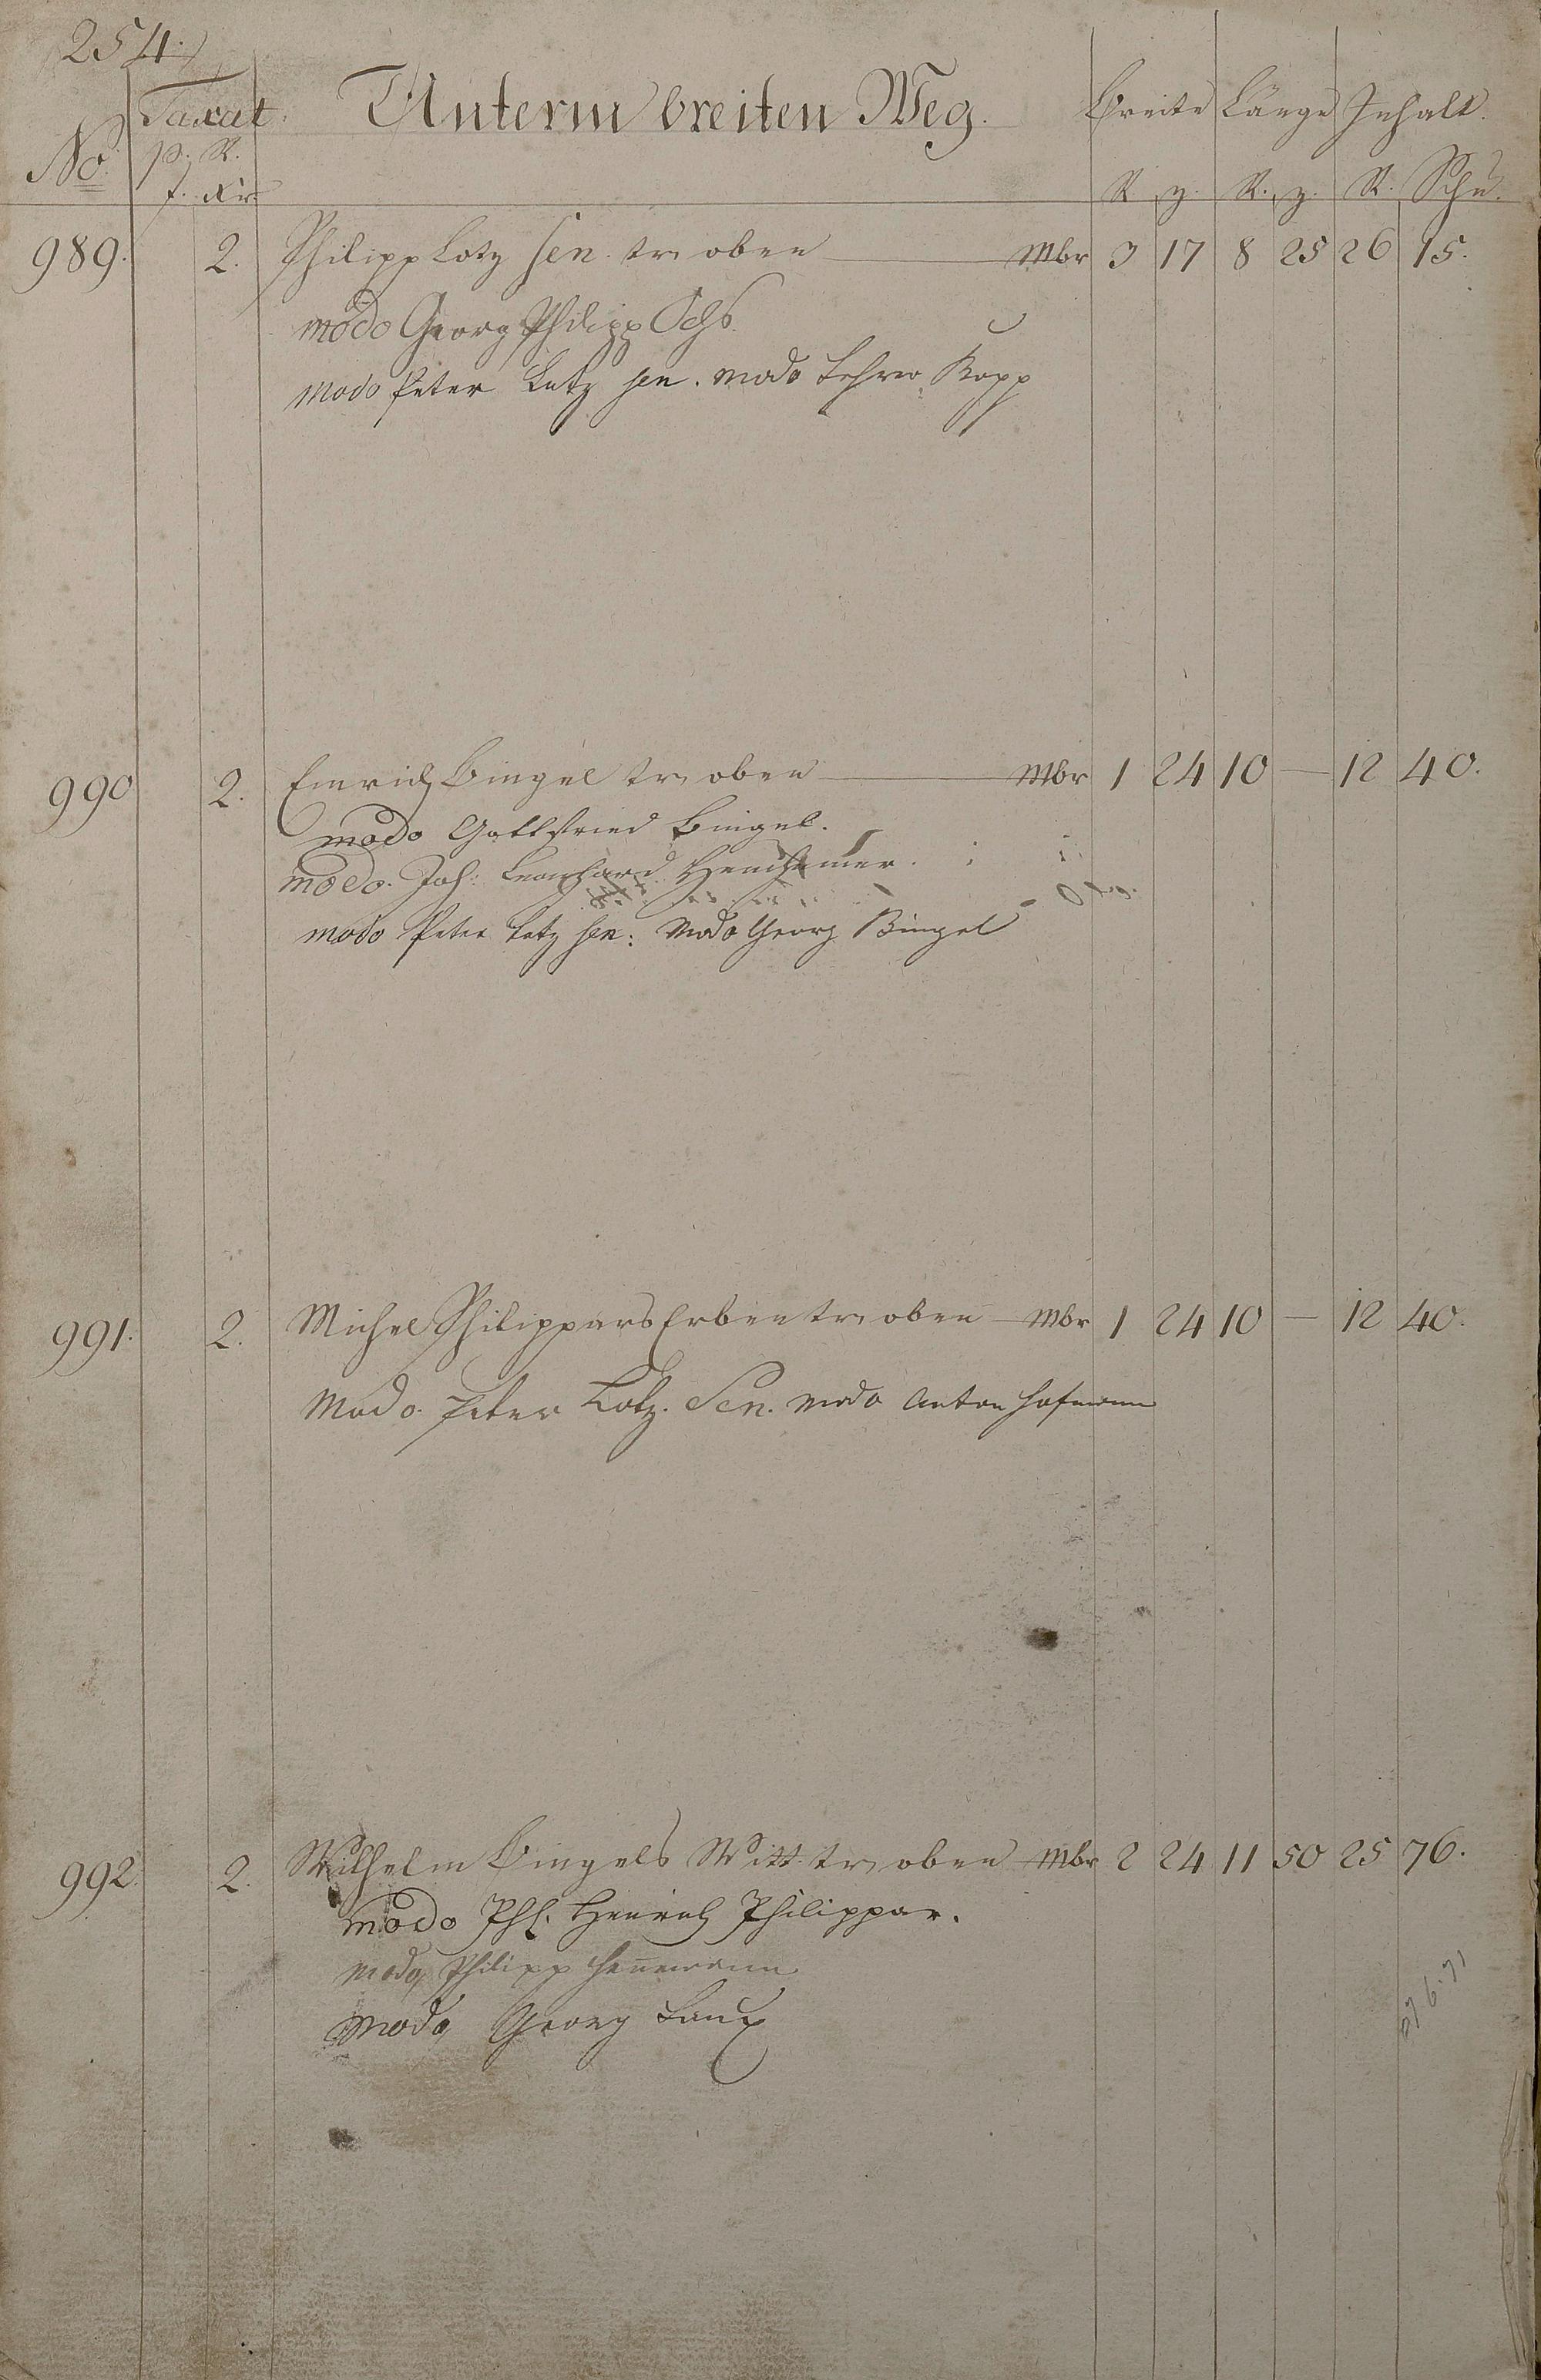 254.
Taxat. Unterm breiten Weg. Breite Länge Inhalt.
No. p. R.
f. Xr. R. z. R. z. R. Schu.
989. 2. Philipp Lotz sen. tr. oben Mbr 3 17 8 25 26 15.
modo Georg Philipp Ochs.
modo Peter Lutz sen. modo Lehrer Kopp
990 2. Emrich Bingel tr. oben Mbr 1 24 10 — 12 40.
modo Gottfried Bingel.
modo. Joh: Leonhard
modo Peter Lotz sen: modo Georg Bingel
991. 2. Michel Philippars Erben tr. oben Mbr 1 24 10 — 12 40.
Modo. Peter Lotz. Sen. modo Anton Hofmann
992. 2. Wilhelm Bingels Witt. tr. oben Mbr 2 24 11 50 25 76.
modo Phl. Heinrich Philippar.
modo Philipp Hennemann
modo Georg Laux